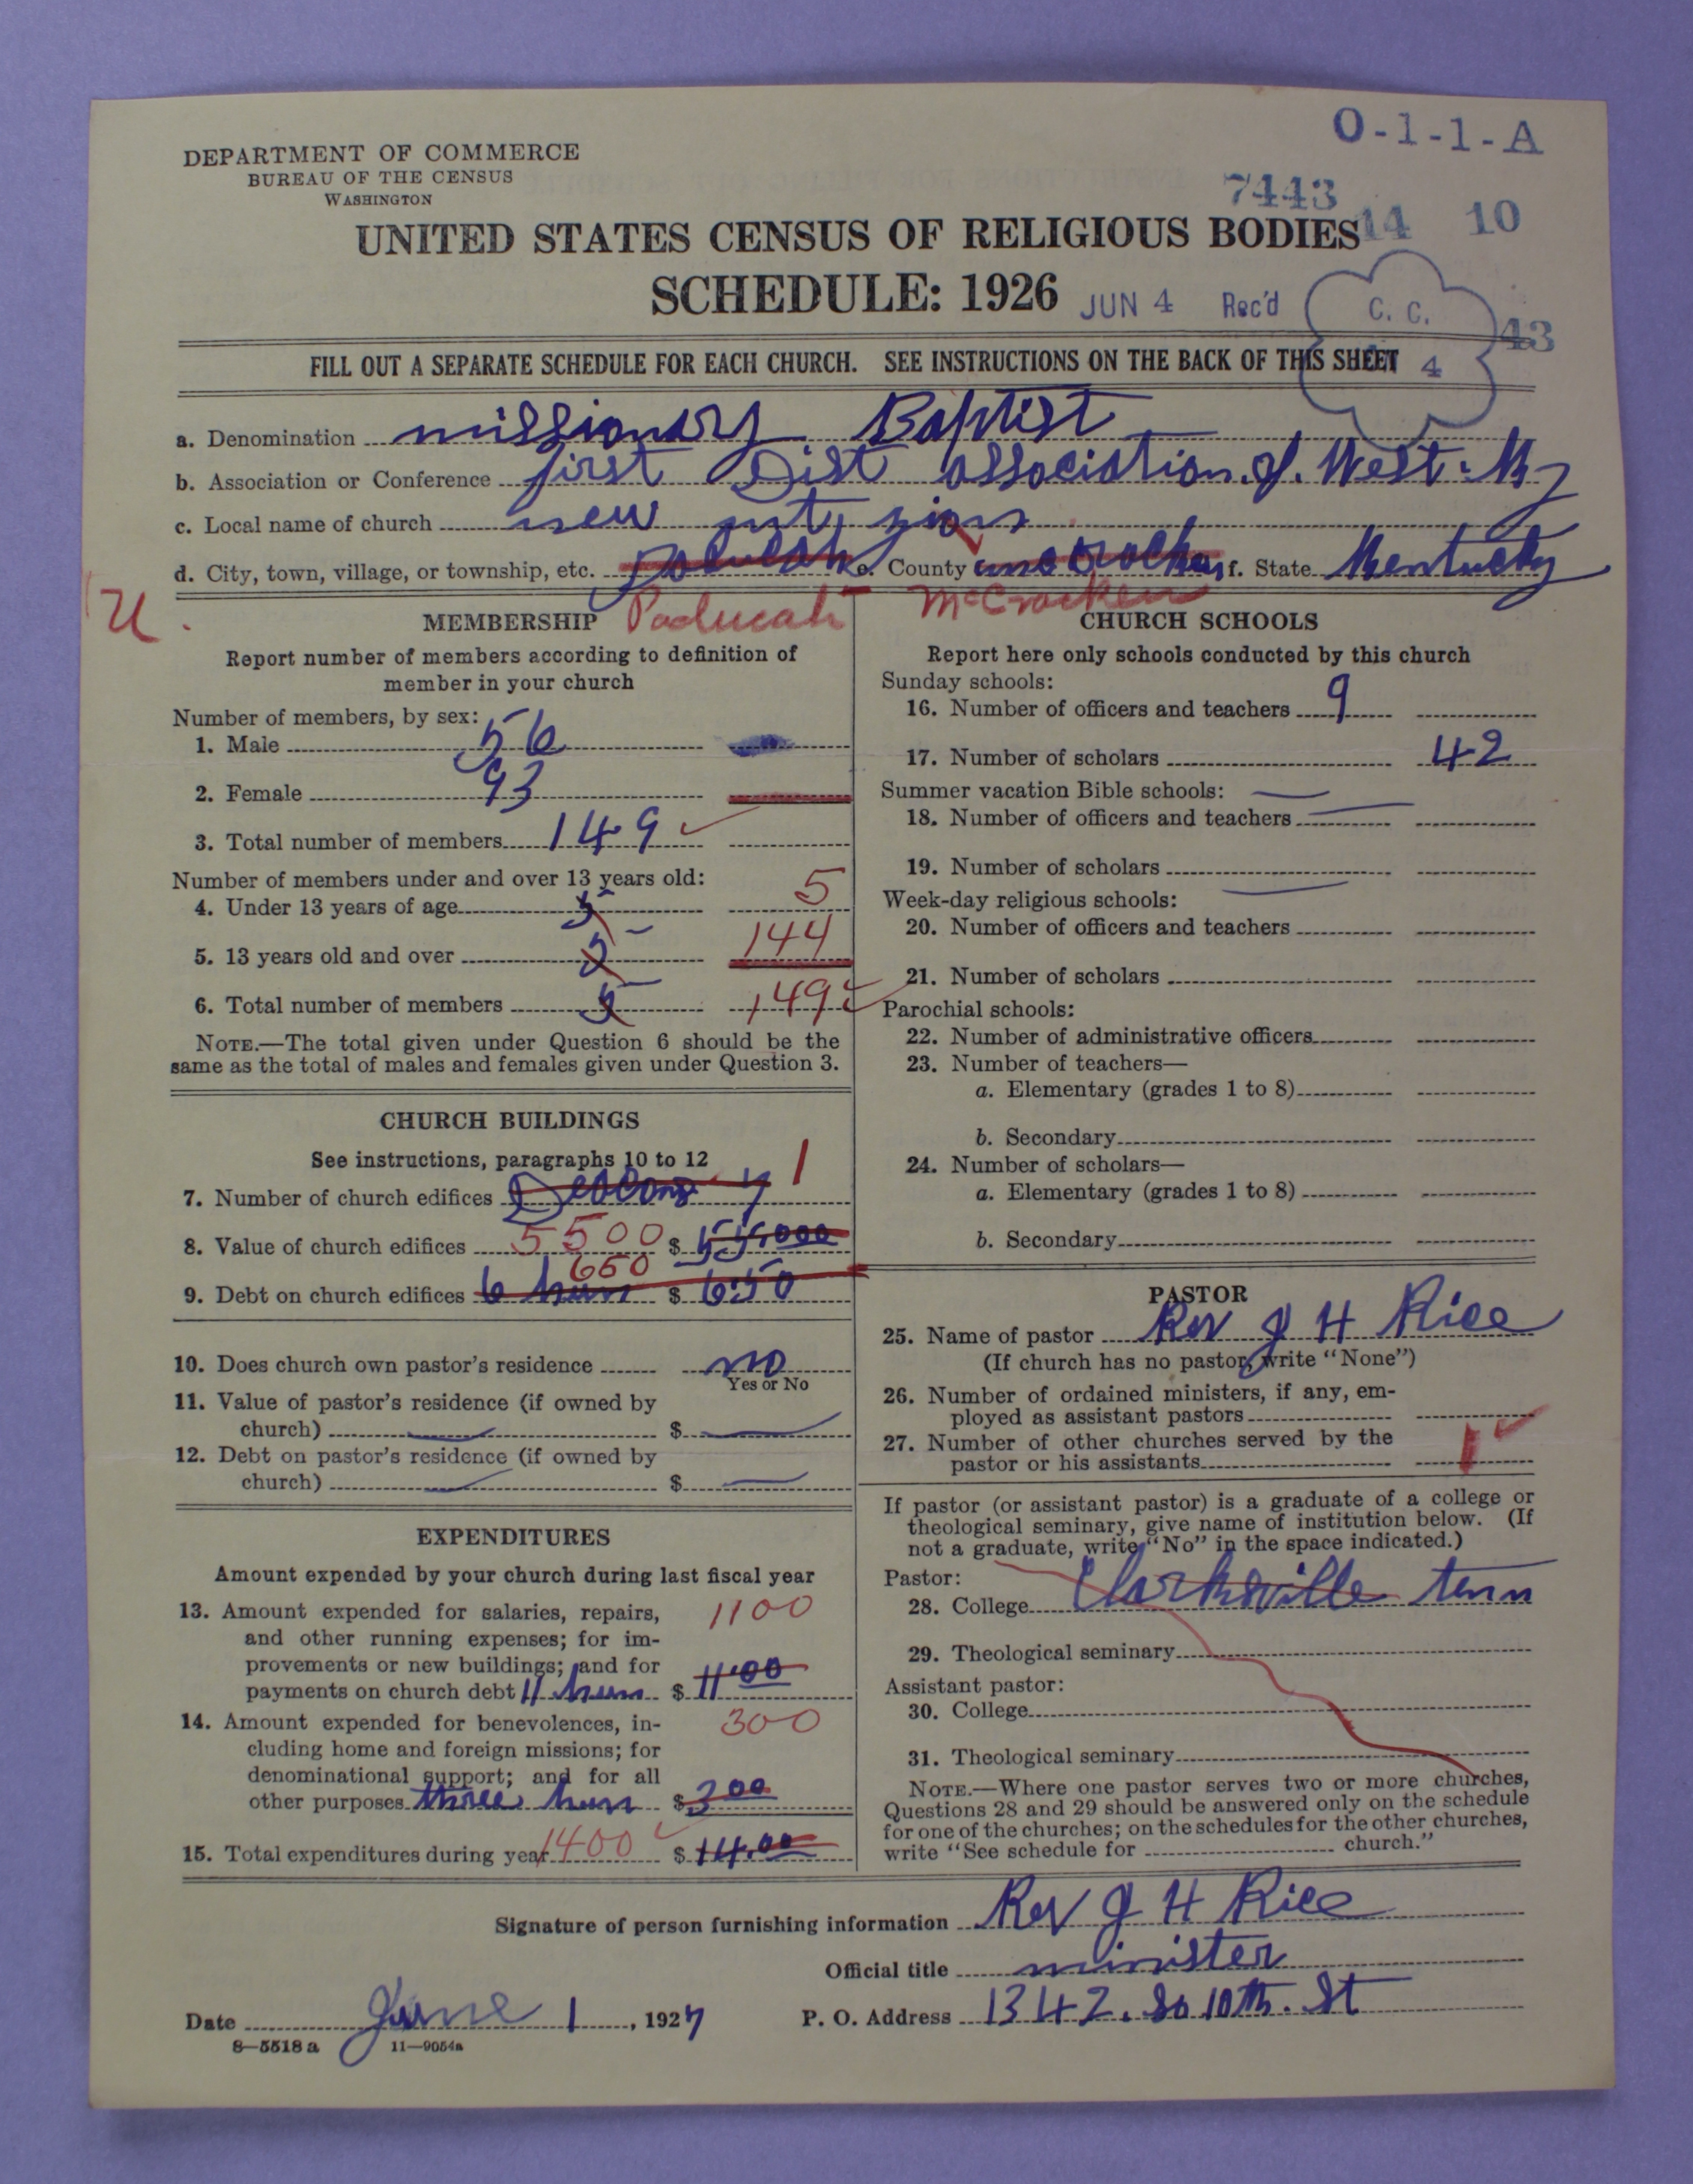 O-1-1-A
DEPARTMENT OF COMMERCE
BUREAU OF THE CENSUS
WASHINGTON
7443
14 10
UNITED STATES CENSUS OF RELIGIOUS BODIES
SCHEDULE: 1926 JUN 4 Rec'd
C. C.
43
4
FILL OUT A SEPARATE SCHEDULE FOR EACH CHURCH. SEE INSTRUCTIONS ON THE BACK OF THIS SHEET
a. Denomination missionary Baptist
b. Association or Conference first Dist association of West Ky
c. Local name of church new mt, zion
d. City, town, village, or township, etc. Paducah e. County f. State Kentucky
U. Paducah McCracken
MEMBERSHIP
Report number of members according to definition of
member in your church
Number of members, by sex:
1. Male 56
2. Female 93
3. Total number of members 149
Number of members under and over 13 years old:
4. Under 13 years of age 5 5
5. 13 years old and over 5 144
6. Total number of members 5 149
NOTE.—The total given under Question 6 should be the
same as the total of males and females given under Question 3.
CHURCH BUILDINGS
See instructions, paragraphs 10 to 12
7. Number of church edifices 1
8. Value of church edifices 5500 $ 55,000
650
9. Debt on church edifices 6 hun $ 650
10. Does church own pastor's residence no
Yes or No
11. Value of pastor's residence (if owned by
church) $
12. Debt on pastor's residence (if owned by
church) $
EXPENDITURES
Amount expended by your church during last fiscal year
13. Amount expended for salaries, repairs, 1100
and other running expenses; for im-
provements or new buildings; and for
payments on church debt 11 hun $ 11.00
14. Amount expended for benevolences, in- 300
cluding home and foreign missions; for
denominational support; and for all
other purposes three hun $ 3 00
15. Total expenditures during year 1400 $ 14.00
CHURCH SCHOOLS
Report here only schools conducted by this church
Sunday schools:
16. Number of officers and teachers 9
17. Number of scholars 42
Summer vacation Bible schools:
18. Number of officers and teachers
19. Number of scholars
Week-day religious schools:
20. Number of officers and teachers
21. Number of scholars
Parochial schools:
22. Number of administrative officers
23. Number of teachers—
a. Elementary (grades 1 to 8)
b. Secondary
24. Number of scholars—
a. Elementary (grades 1 to 8)
b. Secondary
PASTOR
25. Name of pastor Rev J H Rice
(If church has no pastor, write "None")
26. Number of ordained ministers, if any, em-
ployed as assistant pastors
27. Number of other churches served by the
pastor or his assistants 1
If pastor (or assistant pastor) is a graduate of a college or
theological seminary, give name of institution below. (If
not a graduate, write "No" in the space indicated.)
Pastor:
28. College Clarksville tenn
29. Theological seminary
Assistant pastor:
30. College
31. Theological seminary
NOTE.—Where one pastor serves two or more churches,
Questions 28 and 29 should be answered only on the schedule
for one of the churches; on the schedules for the other churches,
write "See schedule for church."
Signature of person furnishing information Rev J H Rice
Official title minister
Date June 1, 1927 P. O. Address 1342. So 10th. St
8—5518 a 11—9054a